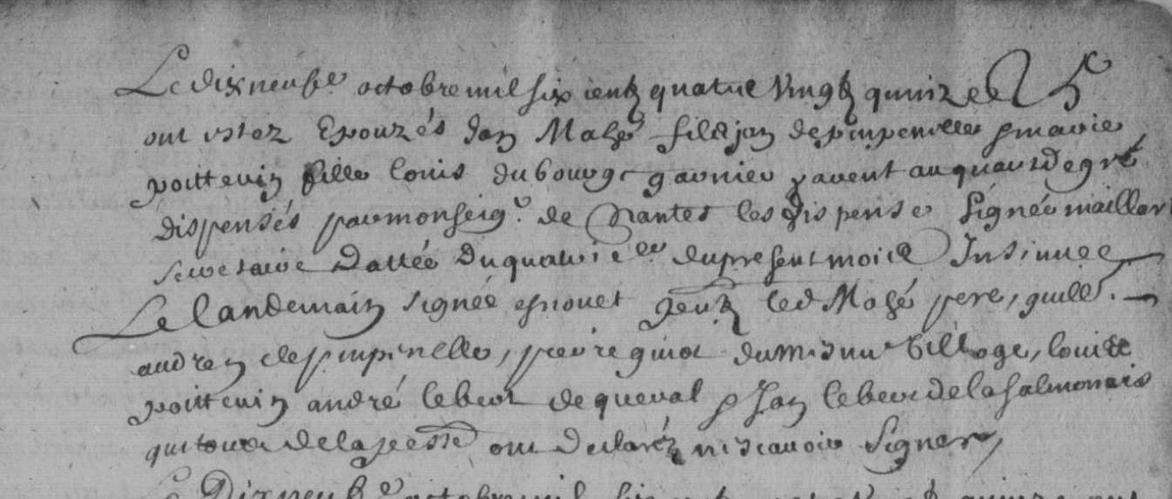 Le dixneufe octobre mil six centz quatre vingtz quinze
ont estez Epouzés Jan Mahé fils Jan de pinpenelle & marie
poittevin fille Louis du bourg garnier parent au quart degré
dispensés par monseigr de Nantes les dispense Signée maillar
Secretaire Dattée Du quatrie du present mois Insinuee
Le landemain signée esnouet p led Mahé pere, guill.
andre de pinpenelle, pierre du mesme village, louis
poittevin andré lebeur de queval & Jan lebeur de la Salmonais
qui tous de la pe este ont Declaréz ne scavoir Signer,
Dixneufe octobre mil